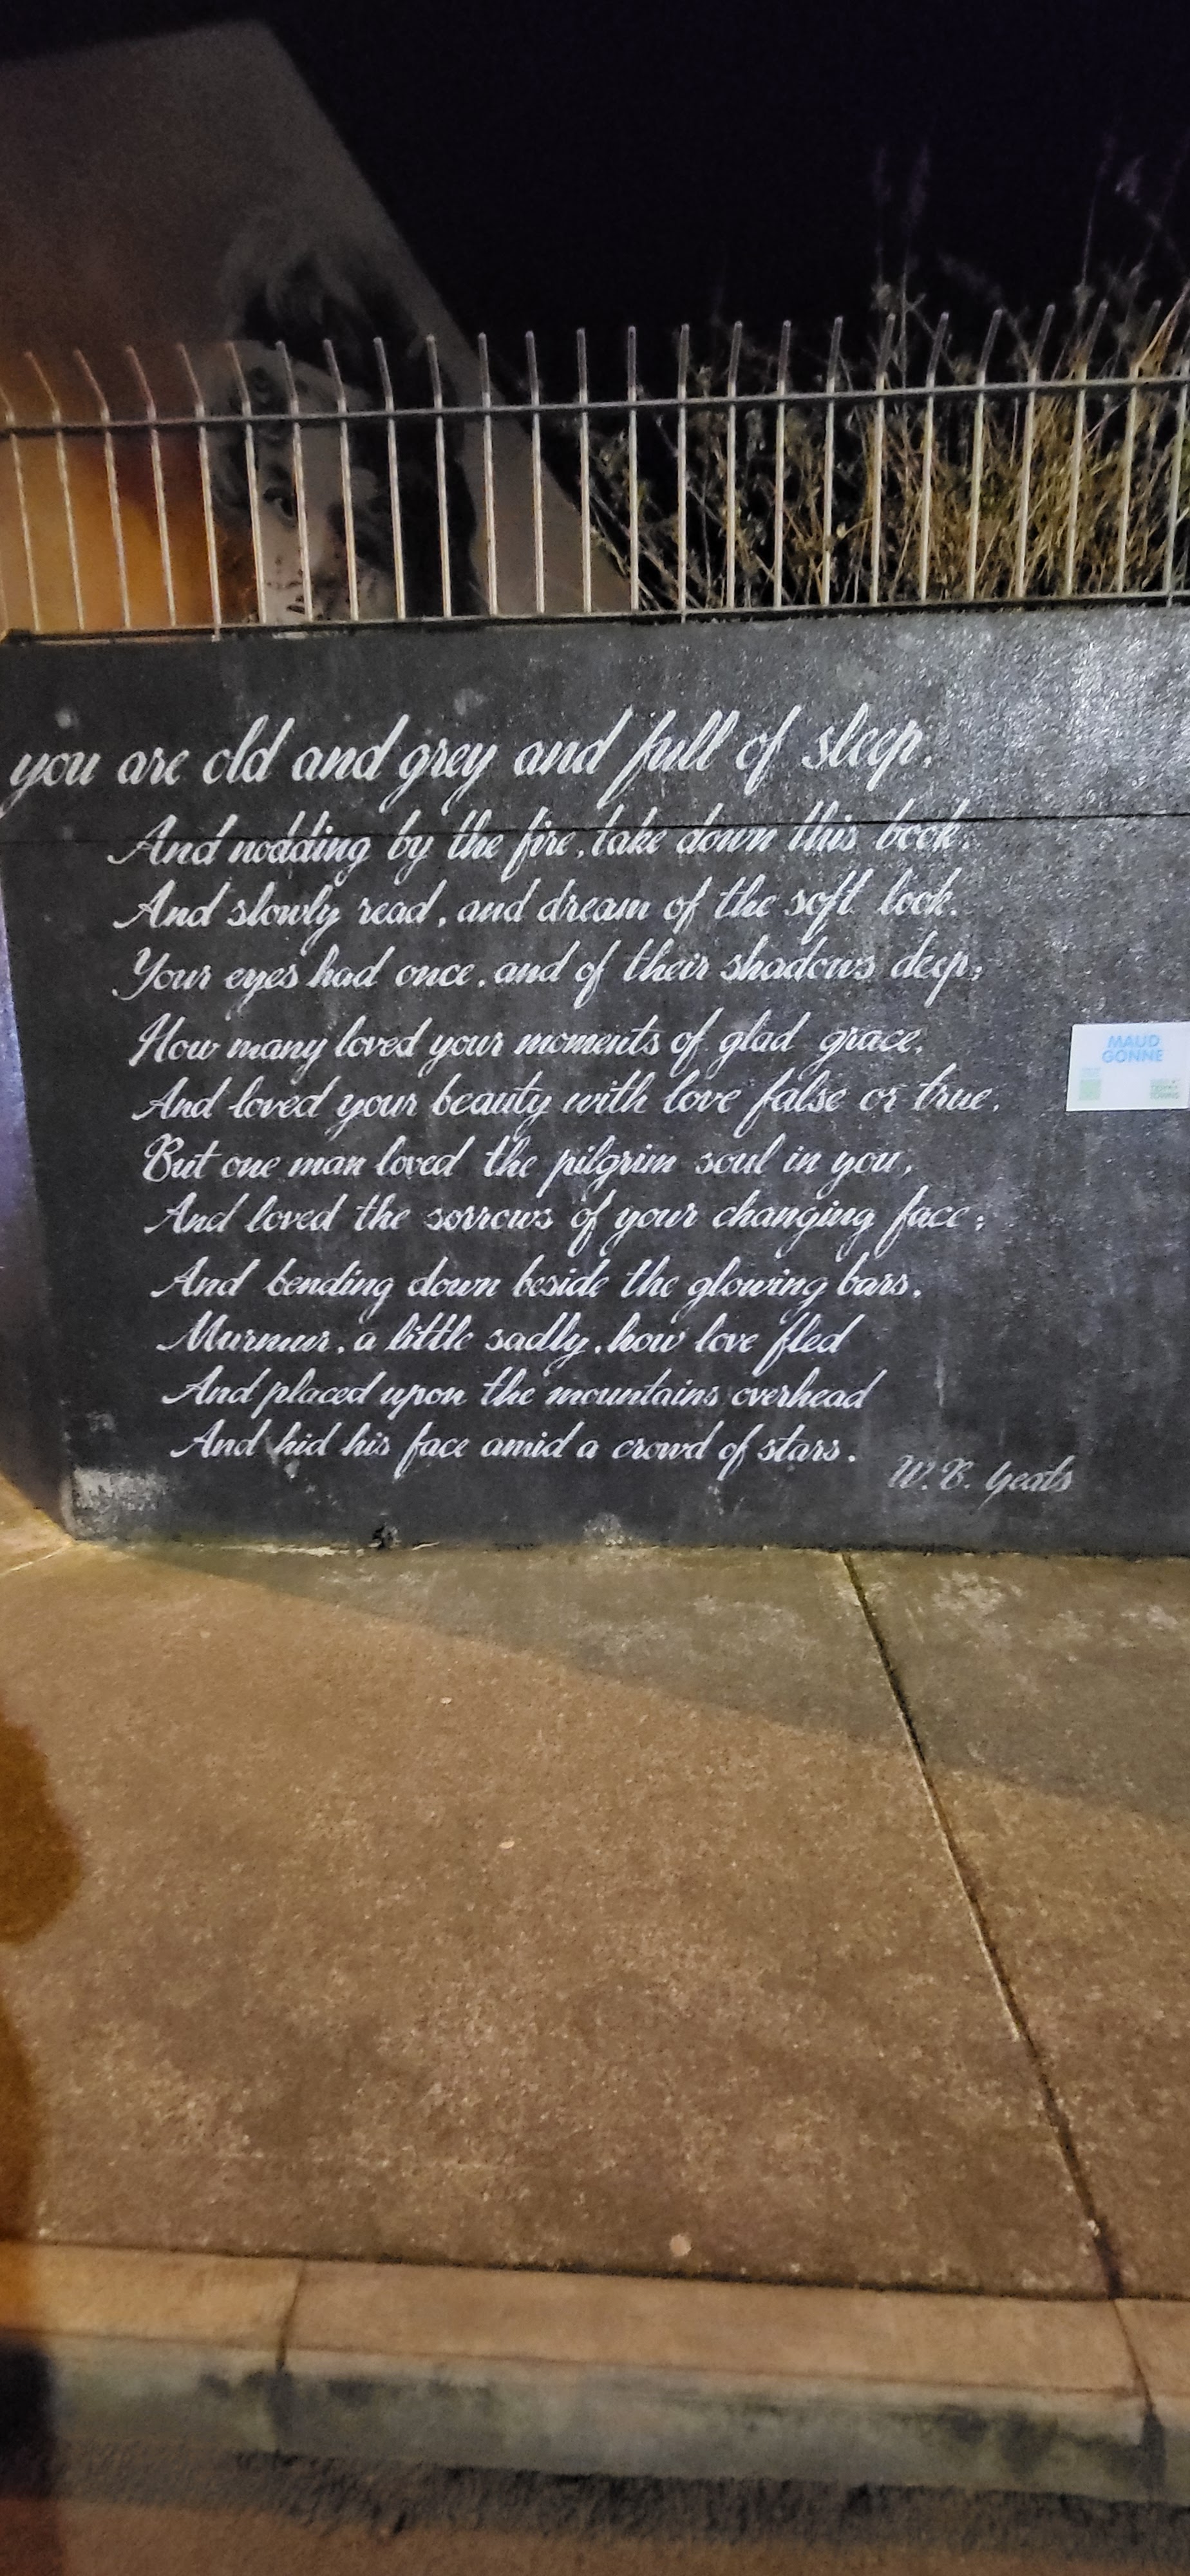 you are old and grey and full of sleep,
And nodding by the fire, take down this book,
And slowly read, and dream of the soft look,
Your eyes had once, and of their shadows deep;
How many loved your moments of glad grace,
And loved your beauty with love false or true,
But one man loved the pilgrim soul in you,
And loved the sorrows of your changing face;
And bending down beside the glowing bars,
Murmur, a little sadly, how love fled
And placed upon the mountains overhead
And hid his face amid a crowd of stars.
W. B. Yeats
MAUD
GONNE